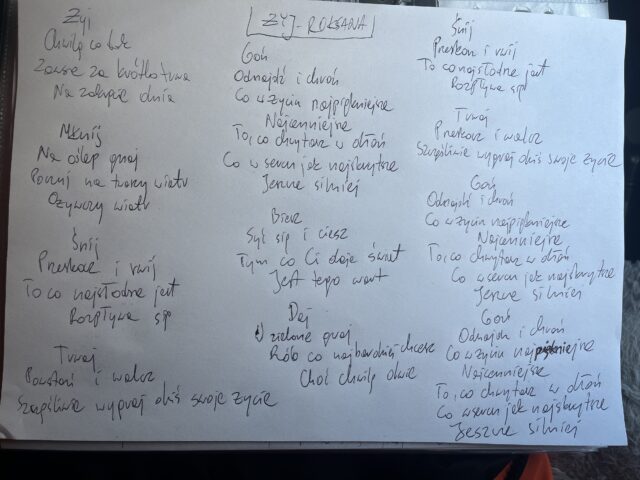 ŻYJ - ROKSANA
Żyj
Chwilę co trwa
Zawsze za krótko trwa
Na zakręcie dnia
Mknij
Na oślep gnaj
Poczuj na twarzy wiatr
Ożywczy wiatr
Śnij
Przeskocz i rwij
To co najsłodsze jest
Rozpływa się
Trwaj
Powstań i walcz
Szczęśliwie wygraj dziś swoje życie
Goń
Odnajdź i chroń
Co w życiu najpiękniejsze
Najcenniejsze
To, co chwytasz w dłoń
Co w sercu jak najskrytsze
Jeszcze silniej
Bierz
Syć się i ciesz
Tym co Ci daje świat
Jest tego wart
Daj
W zielone graj
Rób co najbardziej chcesz
Choć chwilę dwie
Śnij
Przeskocz i rwij
To co najsłodsze jest
Rozpływa się
Trwaj
Przeskocz i walcz
Szczęśliwie wygraj dziś swoje życie
Goń
Odnajdź i chroń
Co w życiu najpiękniejsze
Najcenniejsze
To, co chwytasz w dłoń
Co w sercu jak najskrytsze
Jeszcze silniej
Goń
Odnajdź i chroń
Co w życiu najpiękniejsze
Najcenniejsze
To, co chwytasz w dłoń
Co w sercu jak najskrytsze
Jeszcze silniej